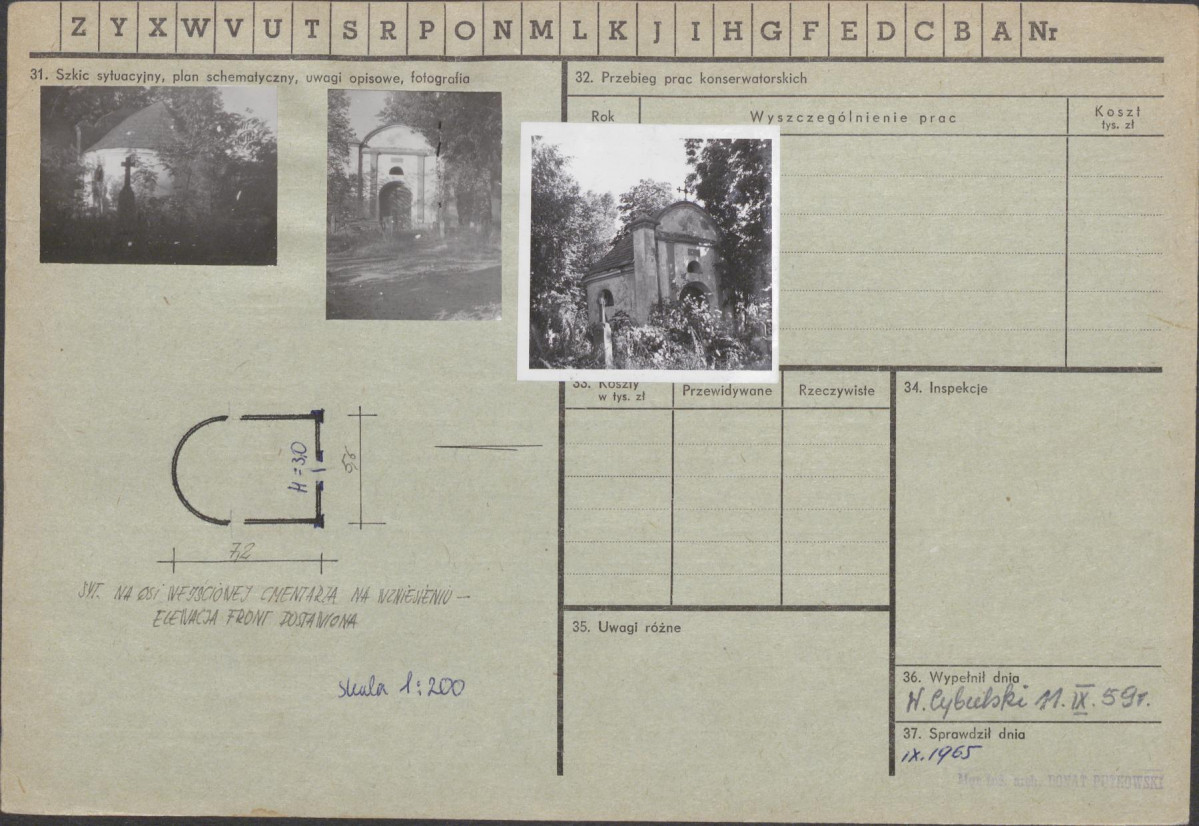 Z Y X W V U T S R P O N M L K J I H G F E D C B A Nr
31. Szkic sytuacyjny, plan schematyczny, uwagi opisowe, fotografia
32. Przebieg prac konserwatorskich
Rok
Wyszczególnienie prac
Koszt
tys. zł
33. Koszty
w tys. zł
Przewidywane
Rzeczywiste
34. Inspekcje
H = 3,0
7,2
SYT. NA OSI WEJŚCIOWEJ CMENTARZA NA WZNIESIENIU —
ELEWACJA FRONT DOSTAWIONA
skala 1:200
35. Uwagi różne
36. Wypełnił dnia
Cybulski 11.IX.59r.
37. Sprawdził dnia
IX.1965
Mgr inż. arch.